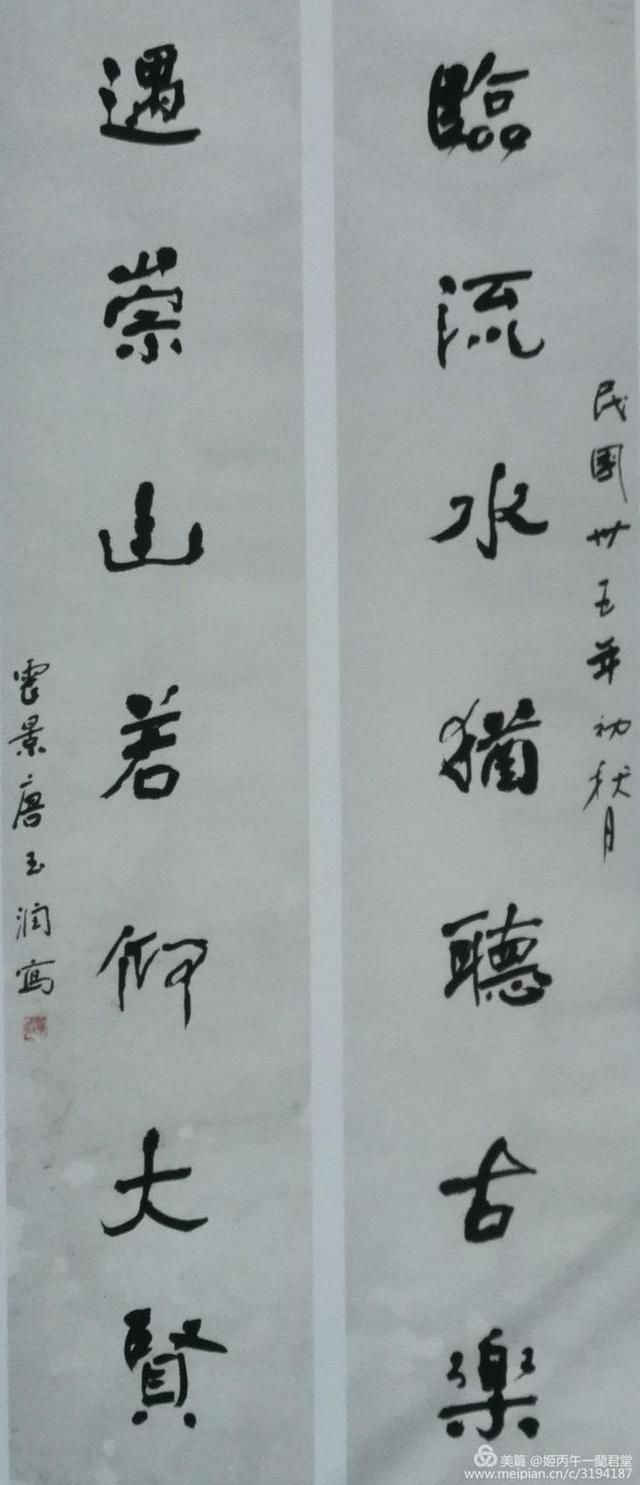 民國卅五年初秋月
臨流水猶聽古樂
遇崇山若仰大賢
雲景唐玉潤寫
美篇 @姬丙午一蘭君堂
www.meipian.cn/c/3194187